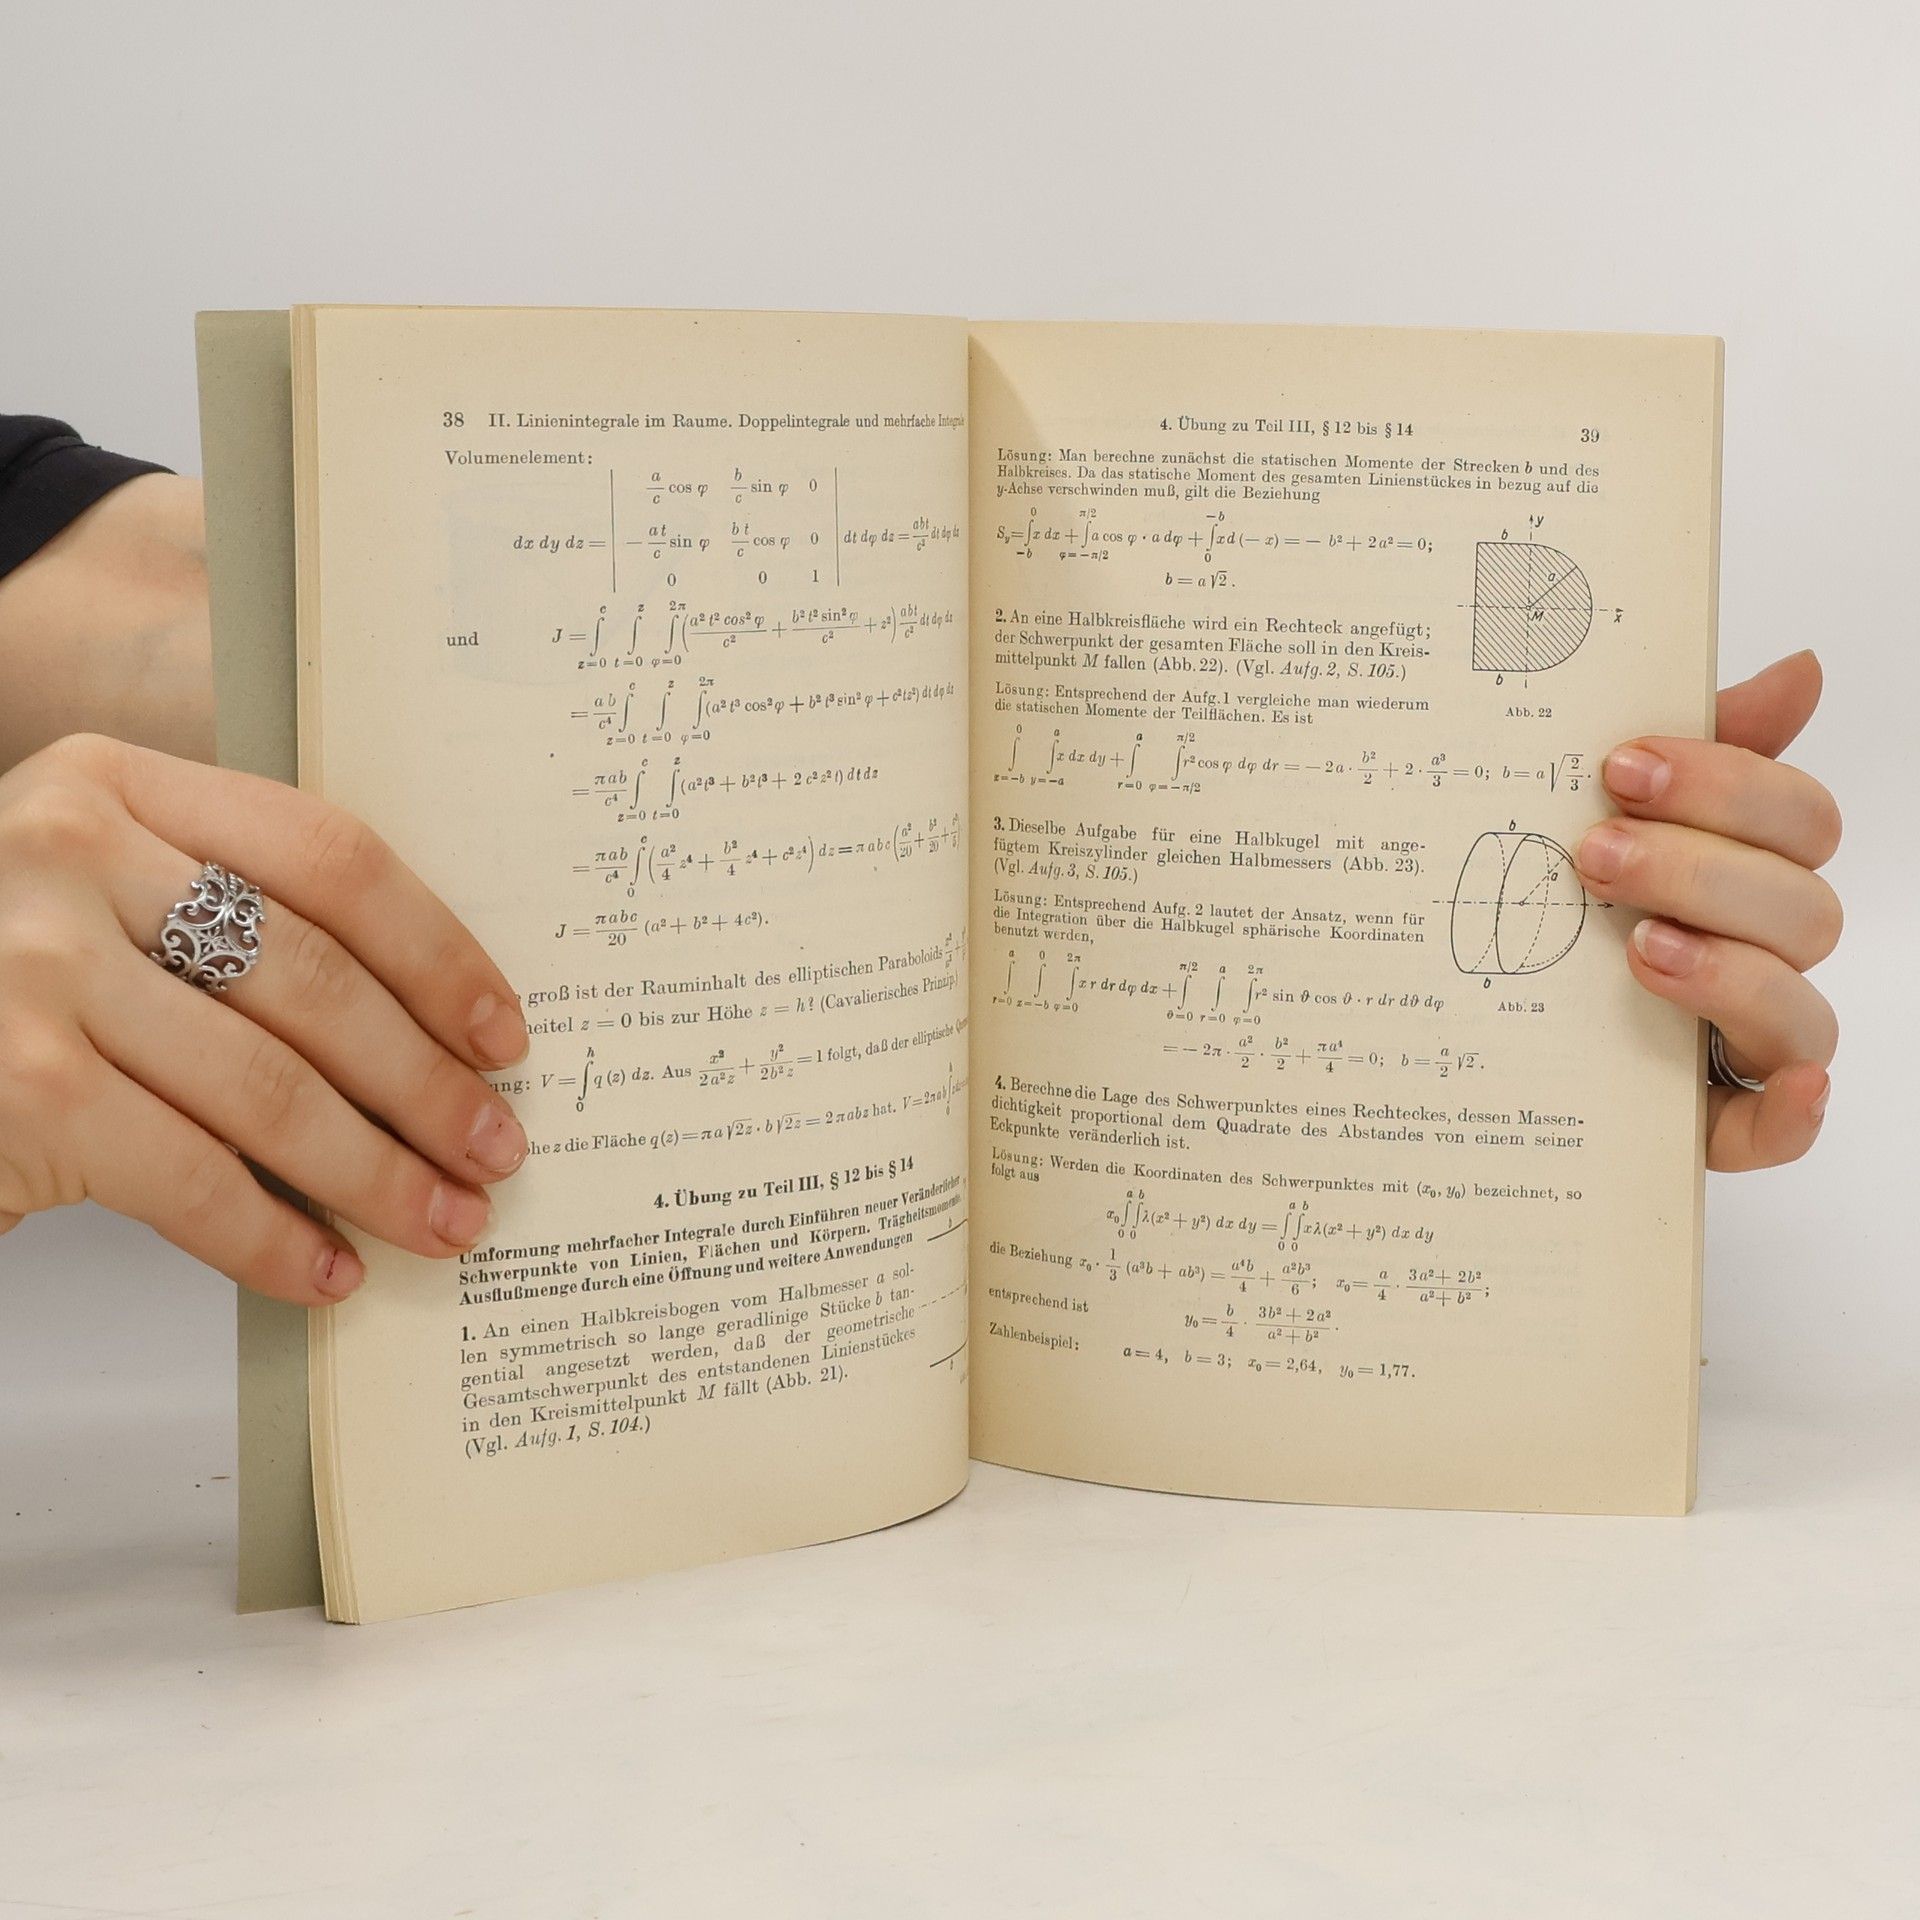 38 II. Linienintegrale im Raume. Doppelintegrale und mehrfache
Volumenelement:
a/c cos φ b/c sin φ 0
dx dy dz = − at/c sin φ bt/c cos φ 0 dt dφ dz = abt/c² dt dφ dz
0 0 1
und J = ∫_{z=0}^{c} ∫_{t=0}^{z} ∫_{φ=0}^{2π} (a² t² cos² φ/c² + b² t² sin² φ/c² + z²) abt/c² dt dφ dz
= ab/c⁴ ∫_{z=0}^{c} ∫_{t=0}^{z} ∫_{φ=0}^{2π} (a² t³ cos² φ + b² t³ sin² φ + c² t z²) dt dφ dz
= πab/c⁴ ∫_{z=0}^{c} ∫_{t=0}^{z} (a² t³ + b² t³ + 2 c² z² t) dt dz
= πab/c⁴ ∫_{0}^{c} (a²/4 z⁴ + b²/4 z⁴ + c² z⁴) dz = πabc (a²/20 + b²/20 + c²/5)
J = πabc/20 (a² + b² + 4c²).
groß ist der Rauminhalt des elliptischen Paraboloids
z = 0 bis zur Höhe z = h? (Cavalierisches Prinzip.)
V = ∫_{0}^{h} q (z) dz. Aus x²/2a²z + y²/2b²z = 1 folgt, daß der elliptische
z die Fläche q(z) = πa √2z · b √2z = 2πabz hat. V = 2πab
4. Übung zu Teil III, § 12 bis § 14
Umformung mehrfacher Integrale durch Einführen neuer Veränderlicher
Schwerpunkte von Linien, Flächen und Körpern. Trägheitsmomente.
Ausflußmenge durch eine Öffnung und weitere Anwendungen
1. An einen Halbkreisbogen vom Halbmesser a sol-
len symmetrisch so lange geradlinige Stücke b tan-
gential angesetzt werden, daß der geometrische
Gesamtschwerpunkt des entstandenen Linienstückes
in den Kreismittelpunkt M fällt (Abb. 21).
(Vgl. Aufg. 1, S. 104.)
b
b
4. Übung zu Teil III, § 12 bis § 14 39
Lösung: Man berechne zunächst die statischen Momente der Strecken b und des
Halbkreises. Da das statische Moment des gesamten Linienstückes in bezug auf die
y-Achse verschwinden muß, gilt die Beziehung
S_y = ∫_{−b}^{0} x dx + ∫_{φ=−π/2}^{π/2} a cos φ · a dφ + ∫_{0}^{−b} xd (− x) = − b² + 2a² = 0;
b = a √2.
2. An eine Halbkreisfläche wird ein Rechteck angefügt;
der Schwerpunkt der gesamten Fläche soll in den Kreis-
mittelpunkt M fallen (Abb. 22). (Vgl. Aufg. 2, S. 105.)
Lösung: Entsprechend der Aufg. 1 vergleiche man wiederum
die statischen Momente der Teilflächen. Es ist
y
b
a
M
x
b
Abb. 22
∫_{x=−b}^{0} ∫_{y=−a}^{a} x dx dy + ∫_{r=0}^{a} ∫_{φ=−π/2}^{π/2} r² cos φ dφ dr = − 2a · b²/2 + 2 · a³/3 = 0; b = a √(2/3).
3. Dieselbe Aufgabe für eine Halbkugel mit ange-
fügtem Kreiszylinder gleichen Halbmessers (Abb. 23).
(Vgl. Aufg. 3, S. 105.)
Lösung: Entsprechend Aufg. 2 lautet der Ansatz, wenn für
die Integration über die Halbkugel sphärische Koordinaten
benutzt werden,
b
a
b
Abb. 23
∫_{r=0}^{a} ∫_{x=−b}^{0} ∫_{φ=0}^{2π} x r dr dφ dx + ∫_{ϑ=0}^{π/2} ∫_{r=0}^{a} ∫_{φ=0}^{2π} r² sin ϑ cos ϑ · r dr dϑ dφ
= − 2π · a²/2 · b²/2 + πa⁴/4 = 0; b = a/2 √2.
4. Berechne die Lage des Schwerpunktes eines Rechteckes, dessen Massen-
dichtigkeit proportional dem Quadrate des Abstandes von einem seiner
Eckpunkte veränderlich ist.
Lösung: Werden die Koordinaten des Schwerpunktes mit (x₀, y₀) bezeichnet, so
folgt aus
x₀ ∫_{0}^{a} ∫_{0}^{b} λ(x² + y²) dx dy = ∫_{0}^{a} ∫_{0}^{b} xλ(x² + y²) dx dy
die Beziehung x₀ · 1/3 (a³b + ab³) = a⁴b/4 + a²b³/6; x₀ = a/4 · 3a² + 2b²/a² + b²;
entsprechend ist y₀ = b/4 · 3b² + 2a²/a² + b².
Zahlenbeispiel: a = 4, b = 3; x₀ = 2,64, y₀ = 1,77.